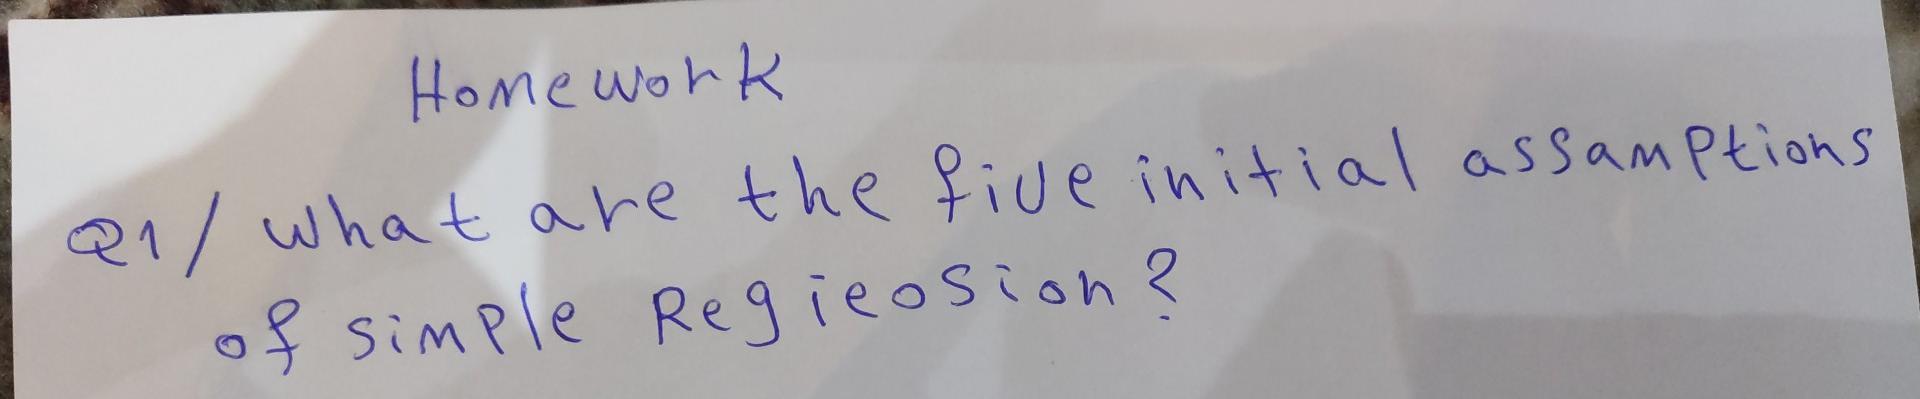 Homework
Q1/ what are the five initial assamptions
of simple Regieosion?